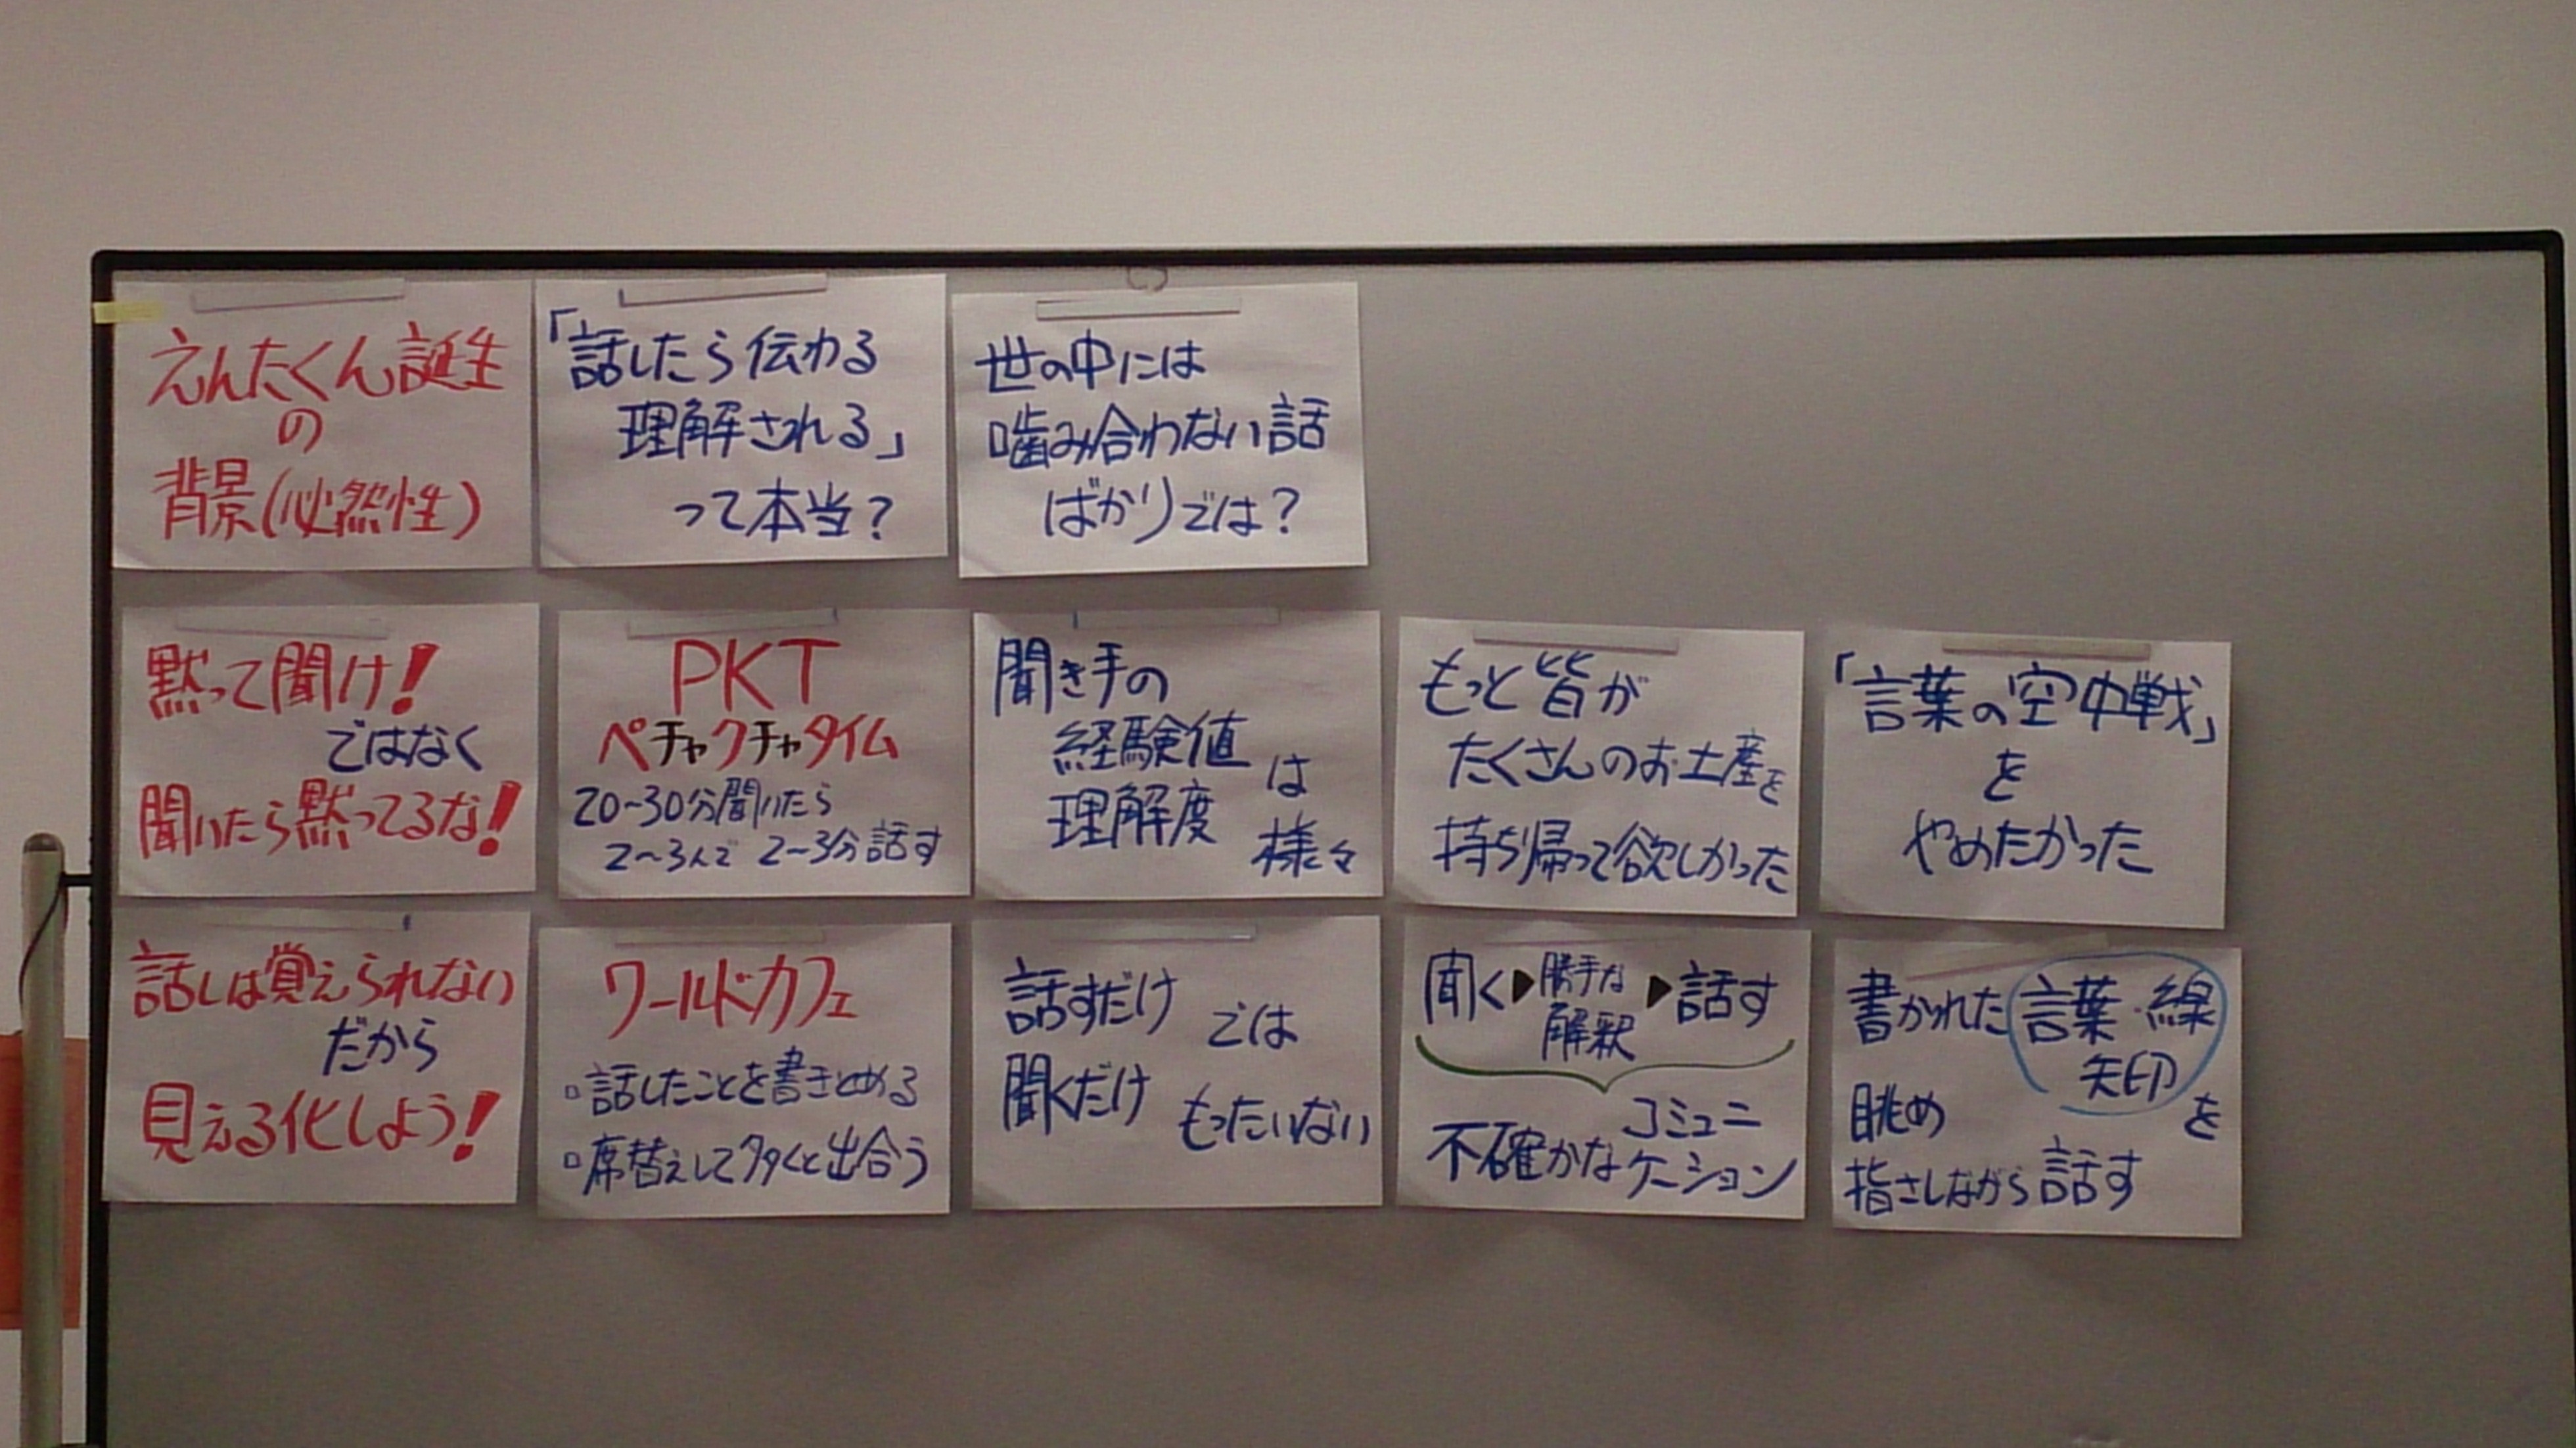 えんたくん誕生
の
背景(必然性)
「話したら伝わる
理解される」
って本当?
世の中には
噛み合わない話
ばかりでは?
黙って聞け!
ではなく
聞いたら黙ってるな!
PKT
ペチャクチャタイム
20~30分聞いたら
2~3人で 2~3分話す
聞き手の
経験値
理解度
は
様々
もっと皆が
たくさんのお土産を
持ち帰って欲しかった
「言葉の空中戦」
を
やめたかった
話しは覚えられない
だから
見える化しよう!
ワールドカフェ
▫話したことを書きとめる
▫席替えして多くと出合う
話すだけ
聞くだけ
では
もったいない
聞く▶勝手な解釈▶話す
不確かなコミュニケーション
書かれた言葉・線
矢印を
眺め
指さしながら話す